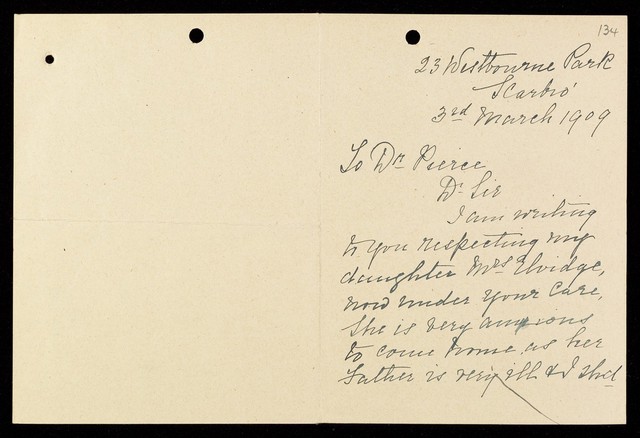 134
23 Westbourne Park
Scarbro'
3rd March 1909
To Dr Pierce
Dr Sir
I am writing
to you respecting my
daughter Mrs Elvidge,
now under your care,
She is very anxious
to come home, as her
Father is very ill & I shd